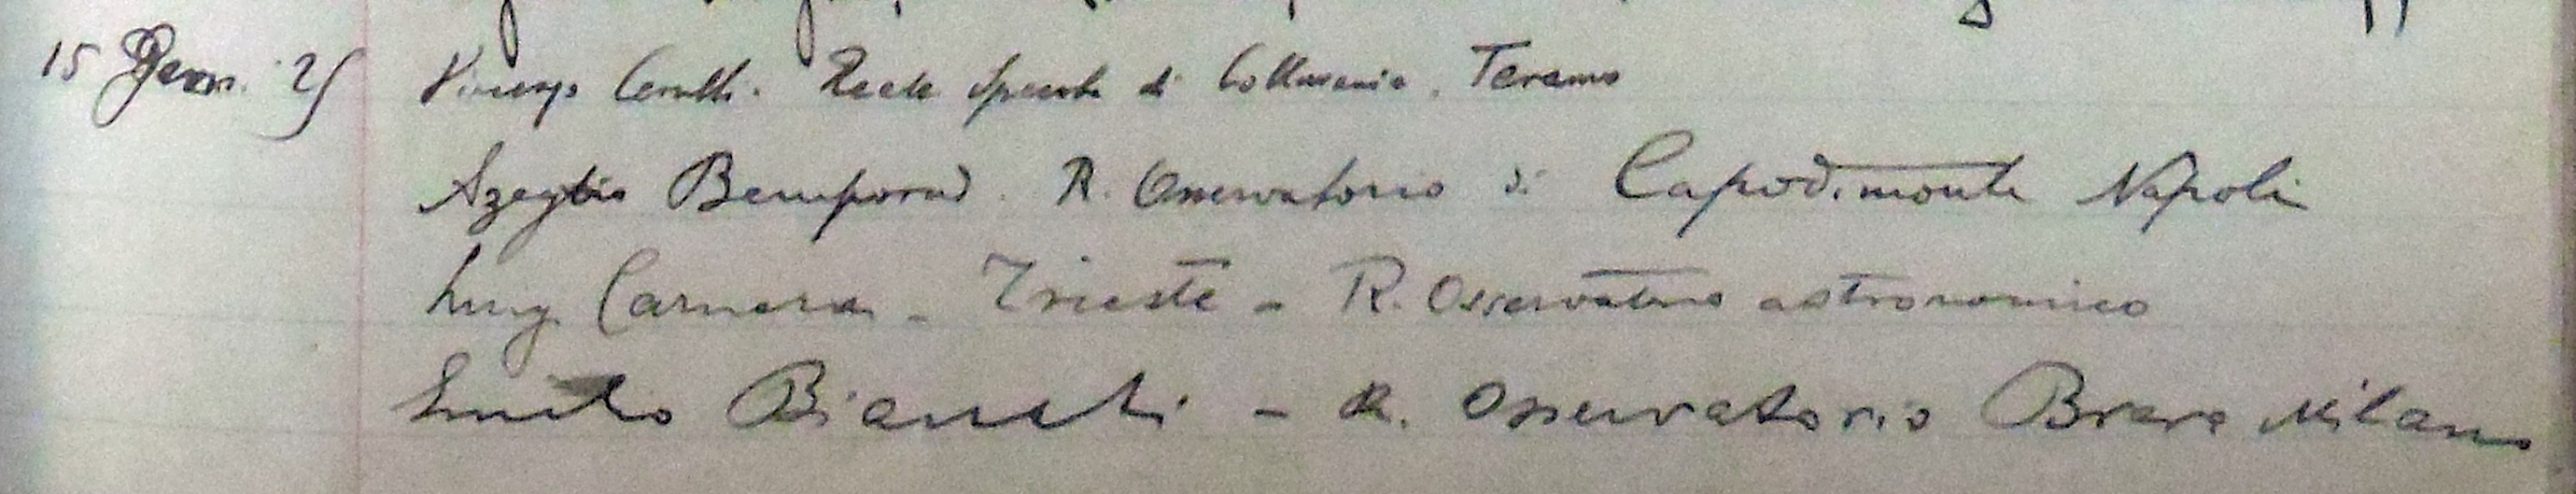 15 Genn. 25 Vincenzo Cerulli. Reale Specola di Collurania. Teramo
Azeglio Bemporad. R. Osservatorio di Capodimonte Napoli
Luigi Carnera - Trieste - R. Osservatorio astronomico
Emilio Bianchi - R. Osservatorio Brera Milano